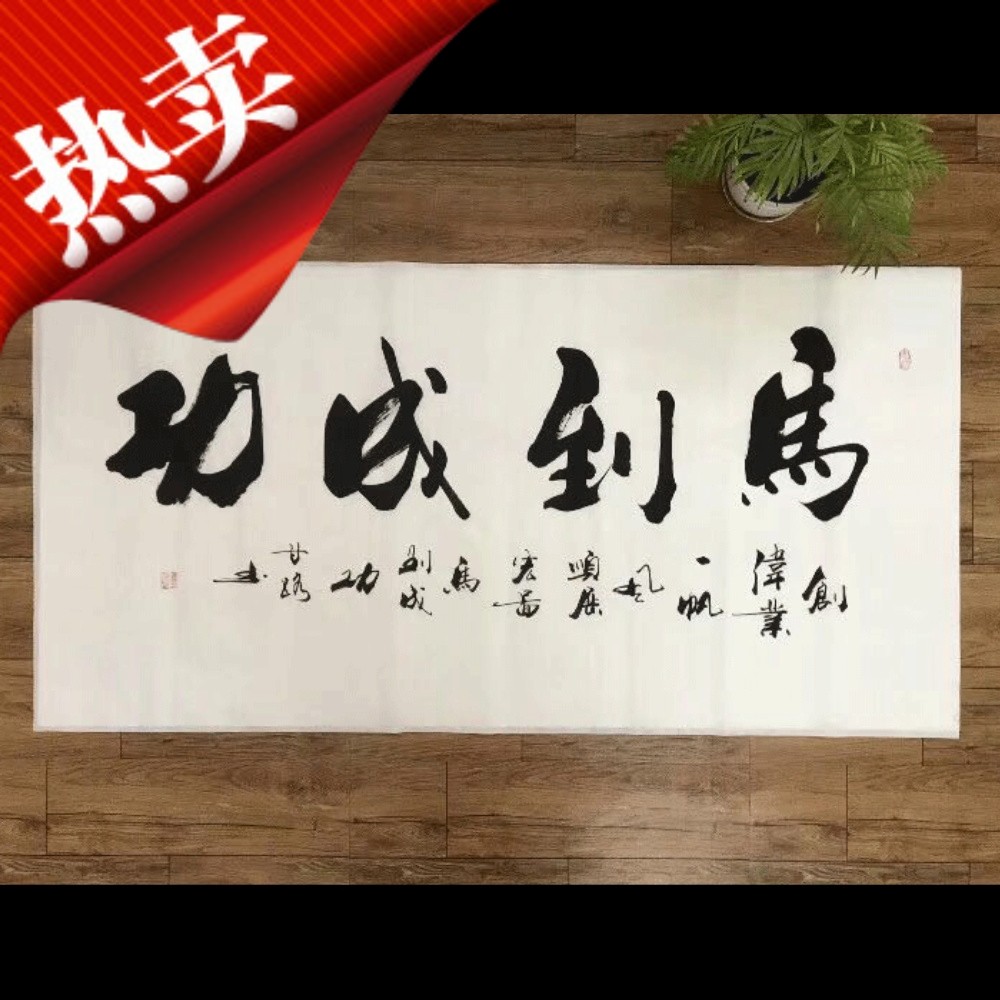 热卖
馬到成功
創偉業一帆風順展宏圖馬到成功
甘路书